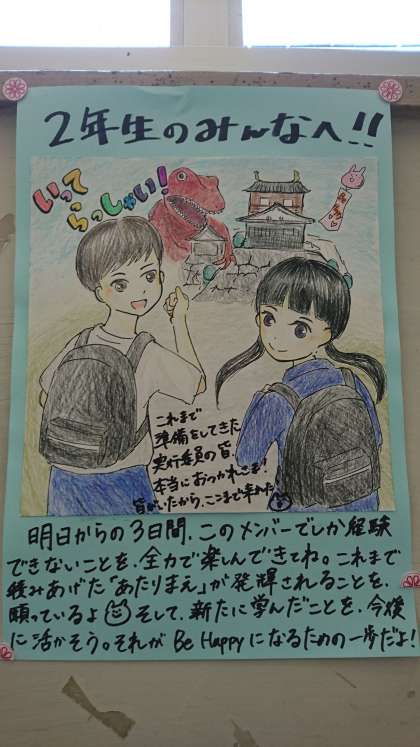 2年生のみんなへ!!
いって
らっしゃい!
これまで
準備をしてきた
実行委員の皆、
本当におつかれさま!
皆がいたから、ここまで来れた
明日からの3日間、このメンバーでしか経験
できないことを、全力で楽しんできてね。これまで
積みあげた「あたりまえ」が発揮されることを、
願っているよ そして、新たに学んだことを、今後
に活かそう。それが Be Happyになるための一歩だよ!